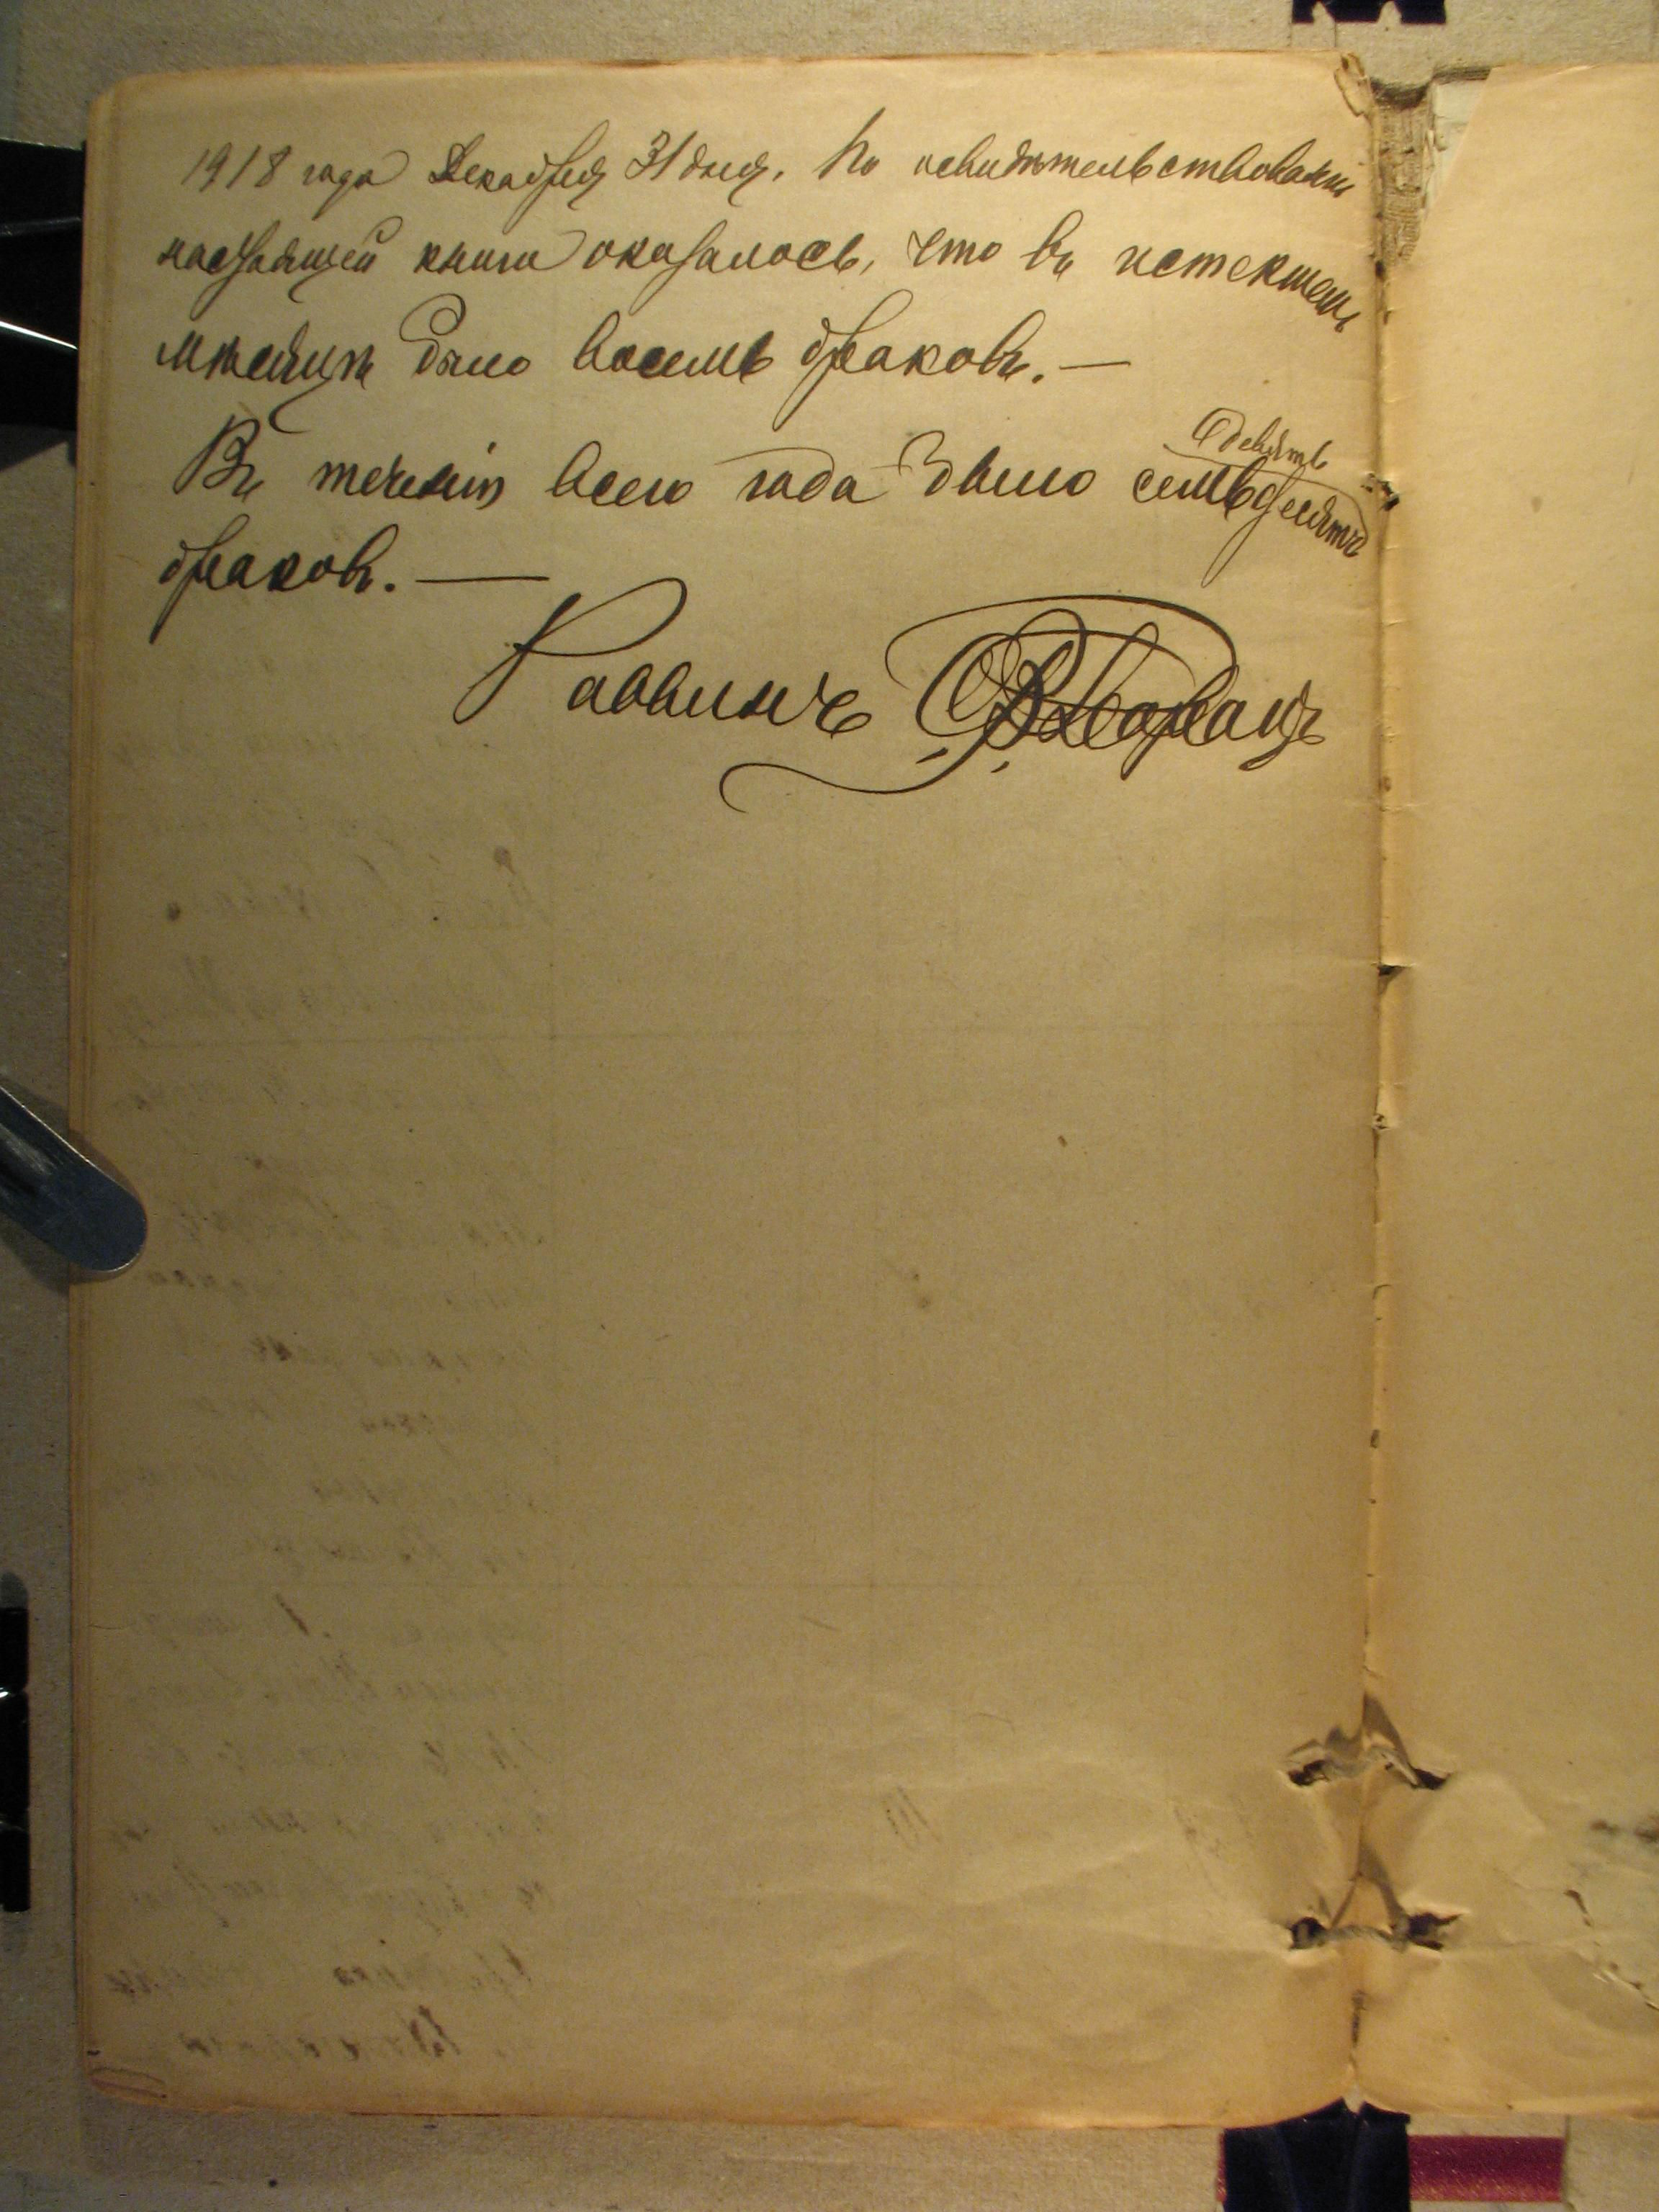 1918 года Декабря 31 дня. По освидѣтельствованіи
настоящей книги оказалось, что въ истекшемъ
мѣсяцѣ было восемь браковъ. —
Въ теченіи всего года было семьдесятъ
девять
браковъ. —
Раввинъ